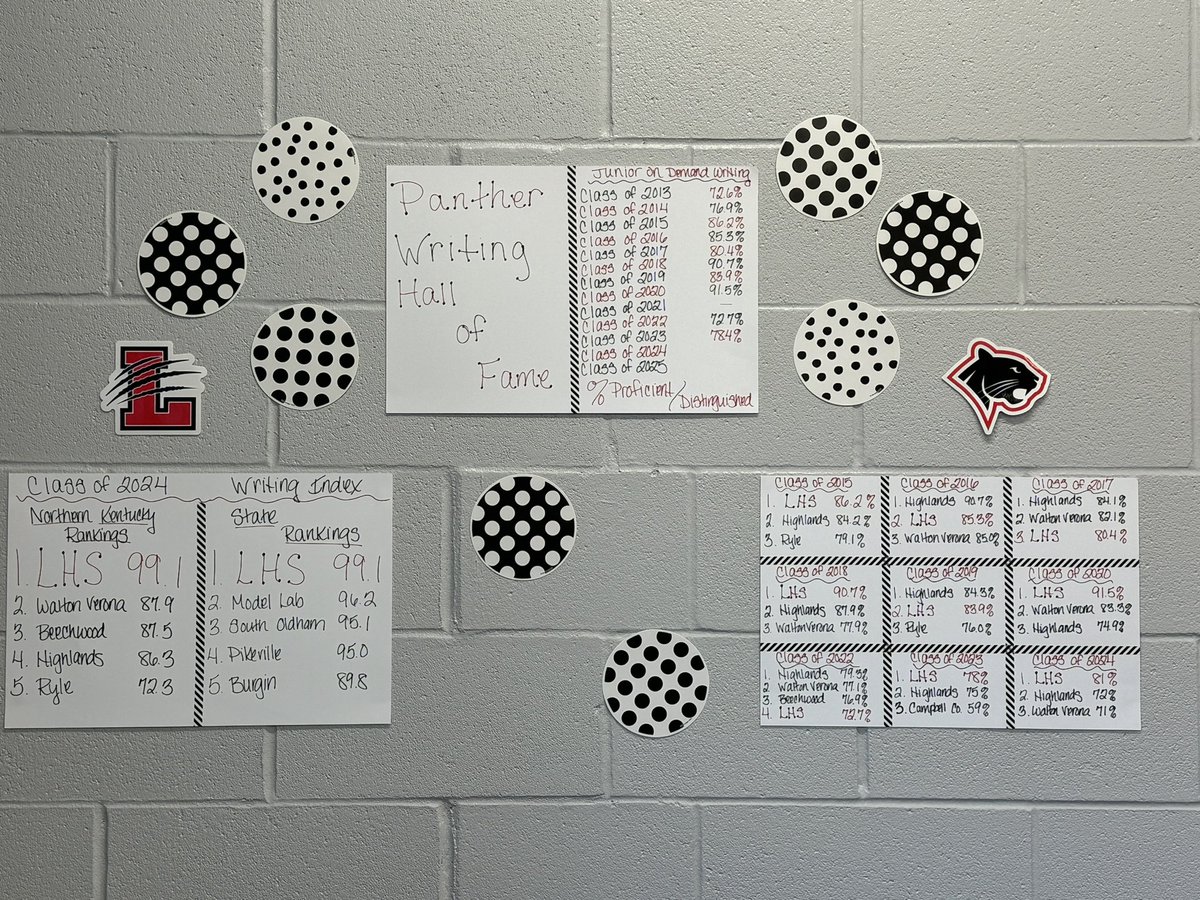 Panther
Writing
Hall
of
Fame
Junior On Demand Writing
Class of 2013 72.6%
Class of 2014 76.9%
Class of 2015 86.2%
Class of 2016 85.3%
Class of 2017 80.4%
Class of 2018 90.7%
Class of 2019 83.9%
Class of 2020 91.5%
Class of 2021 —
Class of 2022 72.7%
Class of 2023 78.4%
Class of 2024
Class of 2025
% Proficient/Distinguished
L
Class of 2024 Writing Index
Northern Kentucky
Rankings
1. LHS 99.1
2. Walton Verona 87.9
3. Beechwood 87.5
4. Highlands 86.3
5. Ryle 72.3
State
Rankings
1. LHS 99.1
2. Model Lab 96.2
3. South Oldham 95.1
4. Pikeville 95.0
5. Burgin 89.8
Class of 2015
1. LHS 86.2%
2. Highlands 84.2%
3. Ryle 79.1%
Class of 2016
1. Highlands 90.7%
2. LHS 85.3%
3. Walton Verona 85.0%
Class of 2017
1. Highlands 84.1%
2. Walton Verona 82.1%
3. LHS 80.4%
Class of 2018
1. LHS 90.7%
2. Highlands 87.9%
3. Walton Verona 77.9%
Class of 2019
1. Highlands 84.3%
2. LHS 83.9%
3. Ryle 76.0%
Class of 2020
1. LHS 91.5%
2. Walton Verona 83.3%
3. Highlands 74.9%
Class of 2022
1. Highlands 79.3%
2. Walton Verona 77.1%
3. Beechwood 76.9%
4. LHS 72.7%
Class of 2023
1. LHS 78%
2. Highlands 75%
3. Campbell Co. 59%
Class of 2024
1. LHS 81%
2. Highlands 72%
3. Walton Verona 71%